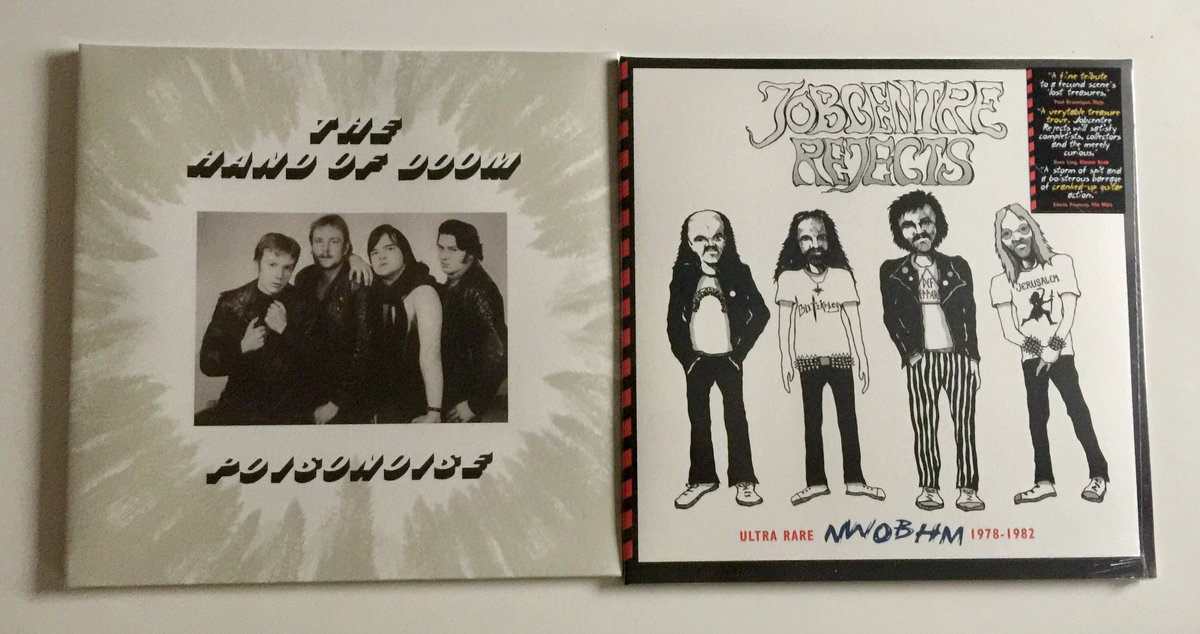 THE
HAND OF DOOM
POISONOISE
JOBCENTRE
REJECTS
"A fine tribute
to a fecund scene's
lost treasures."
Paul Brannigan, Mojo
"A verytable treasure
trove, Jobcentre
Rejects will satisfy
completists, collectors
and the merely
curious."
Dave Ling, Classic Rock
"A storm of spit and
a boisterous barrage
of cranked-up guitar
action."
Edwin Pouncey, The Wire
DEF
LEPPARD
JERUSALEM
ULTRA RARE NWOBHM 1978-1982